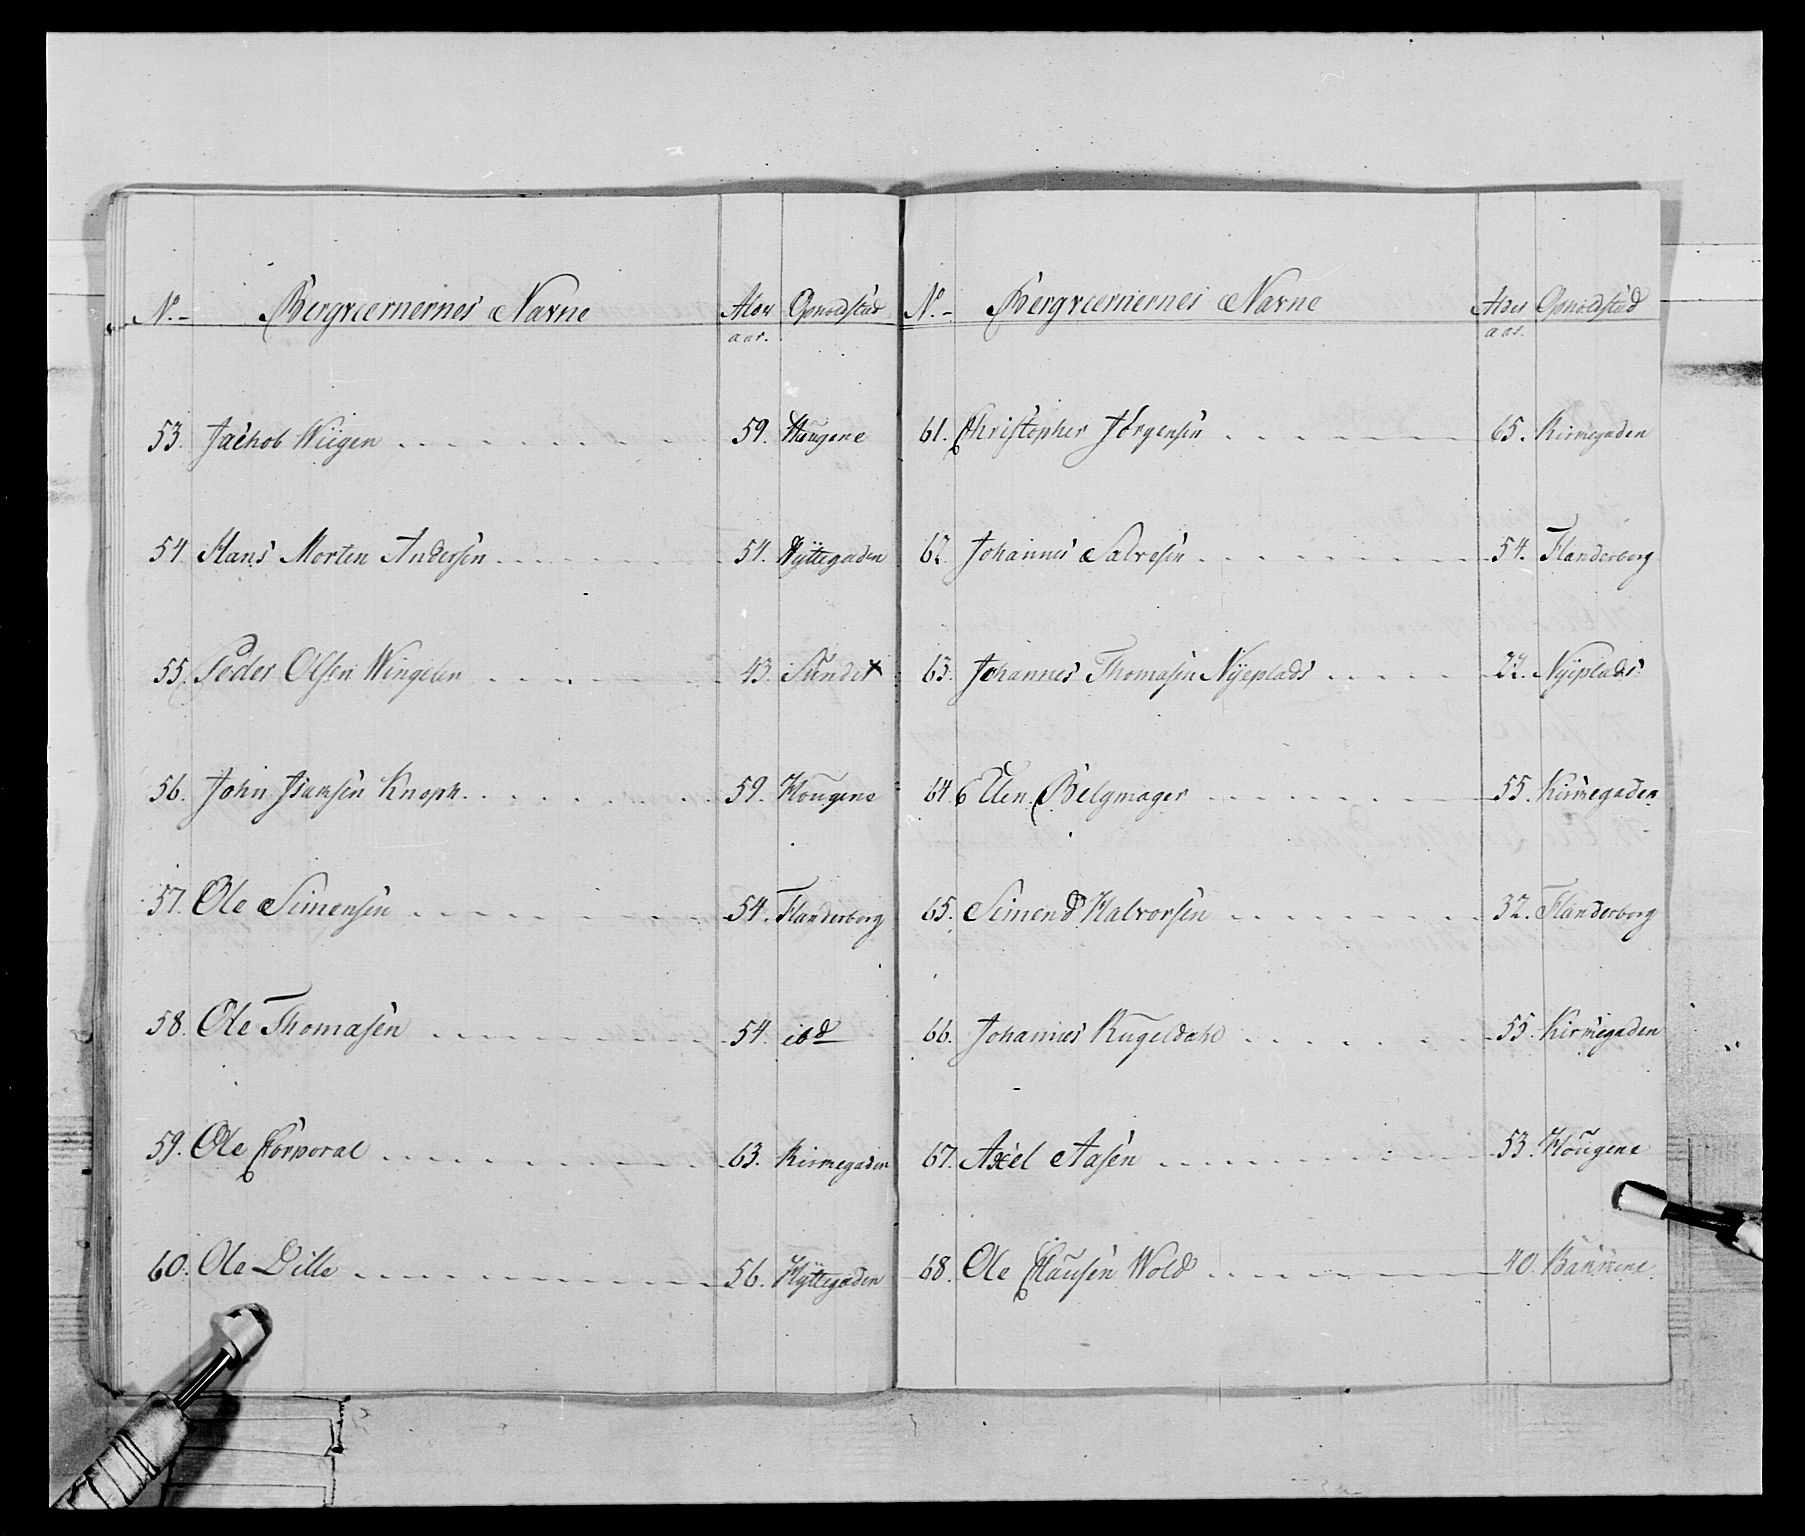 No. – Bergværnernes Navne Alder Opholdstæd
aar.
53. Jachob Wiigen 59. Hougene
54. Hans Morten Andersen 51. Hÿttegaden
55. Peder Olsen Wingelen 43. Sundet
56. John Knoph 59. Hougene
57. Ole Simensen 54. Flanderborg
58. Ole Thomasen 54. ibd
59. Ole Corporal 63. Kirkegaden
60. Ole Dille 56. Hÿttegaden
No. – Bergværnernes Navne Alder Opholdstæd
aar.
61. Christopher Jörgensen 65. Kirkegaden
62. Johannes Salvesen 54. Flanderborg
63. Johannes Thomasen Nÿeplads 22. Nÿeplads
64. Ellen Belgmager 55. Kirkegaden
65. Simend Halvorsen 32. Flanderborg
66. Johannes Kugeldahl 55. Kirkegaden
67. Axel Aasen 53. Hougene
68. Ole Clausen Wold 40.